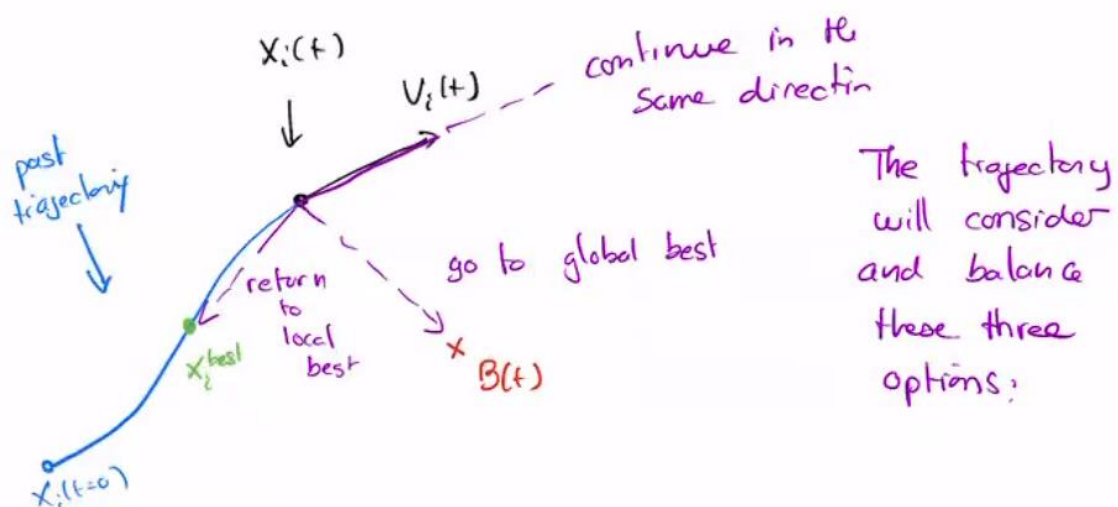 Xi(t)
Vi(t)
continue in the
same directin
past
trajectory
The trajectory
will consider
and balance
these three
options:
go to global best
return
to
local
best
xi^best
B(t)
Xi(t=0)